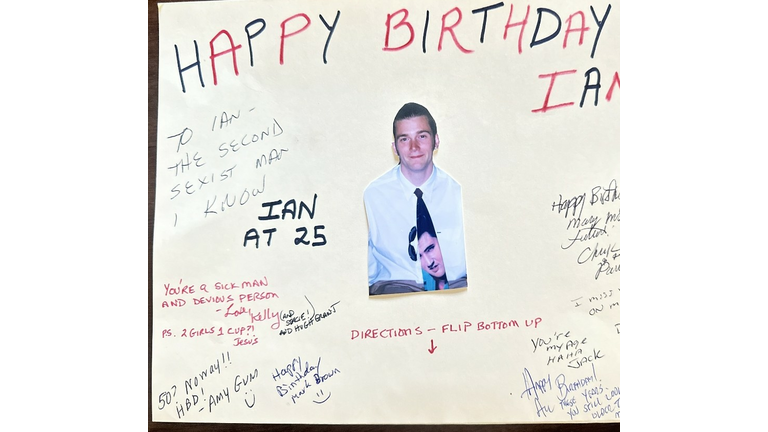 HAPPY BIRTHDAY
IAN
TO IAN -
THE SECOND
SEXIST MAN
I KNOW
IAN
AT 25
YOU'RE A SICK MAN
AND DEVIOUS PERSON
- Love Kelly (AND
STACIE!)
AND HUGH GRANT
PS. 2 GIRLS 1 CUP?!
JESUS
50? NO WAY!!
HBD!
- AMY GUM
Happy
Birthday
Mark Brown
DIRECTIONS - FLIP BOTTOM UP
Happy Birth
Many
Future!
Chuck
&
I miss
ON M
You're
my age
HAHA
Jack
HAPPY BIRTHDAY!
All THESE YEARS.
YOU STILL